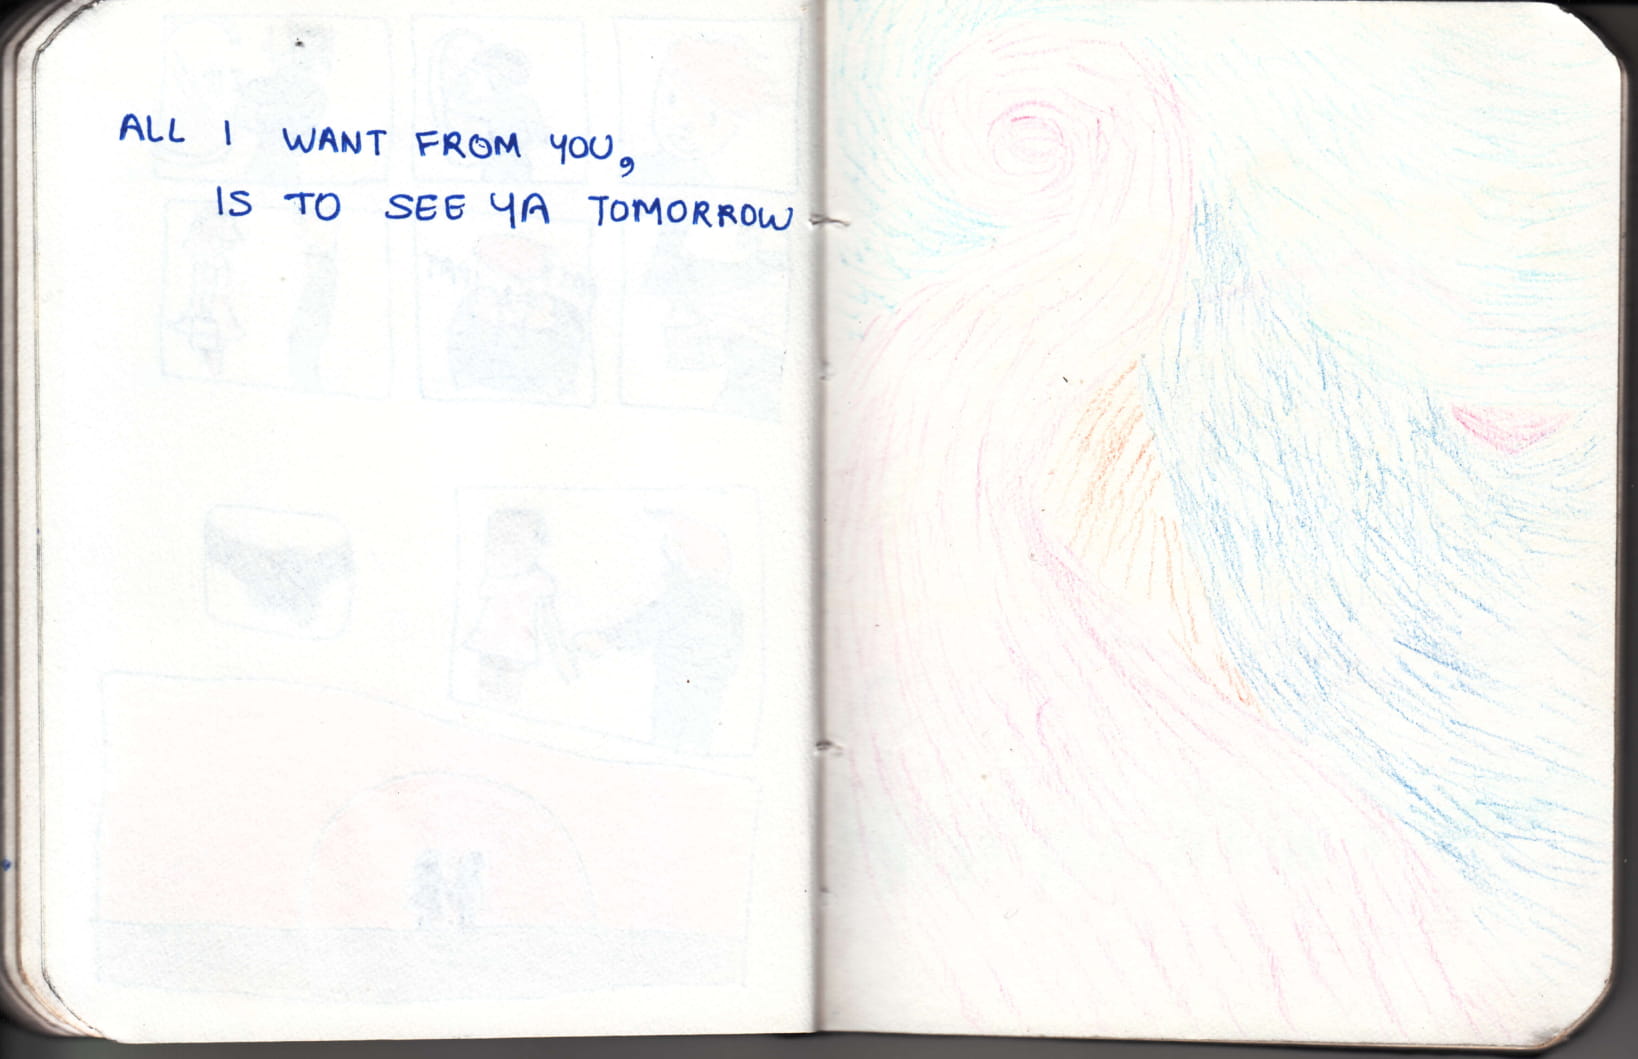 ALL I WANT FROM YOU,
IS TO SEE YA TOMORROW